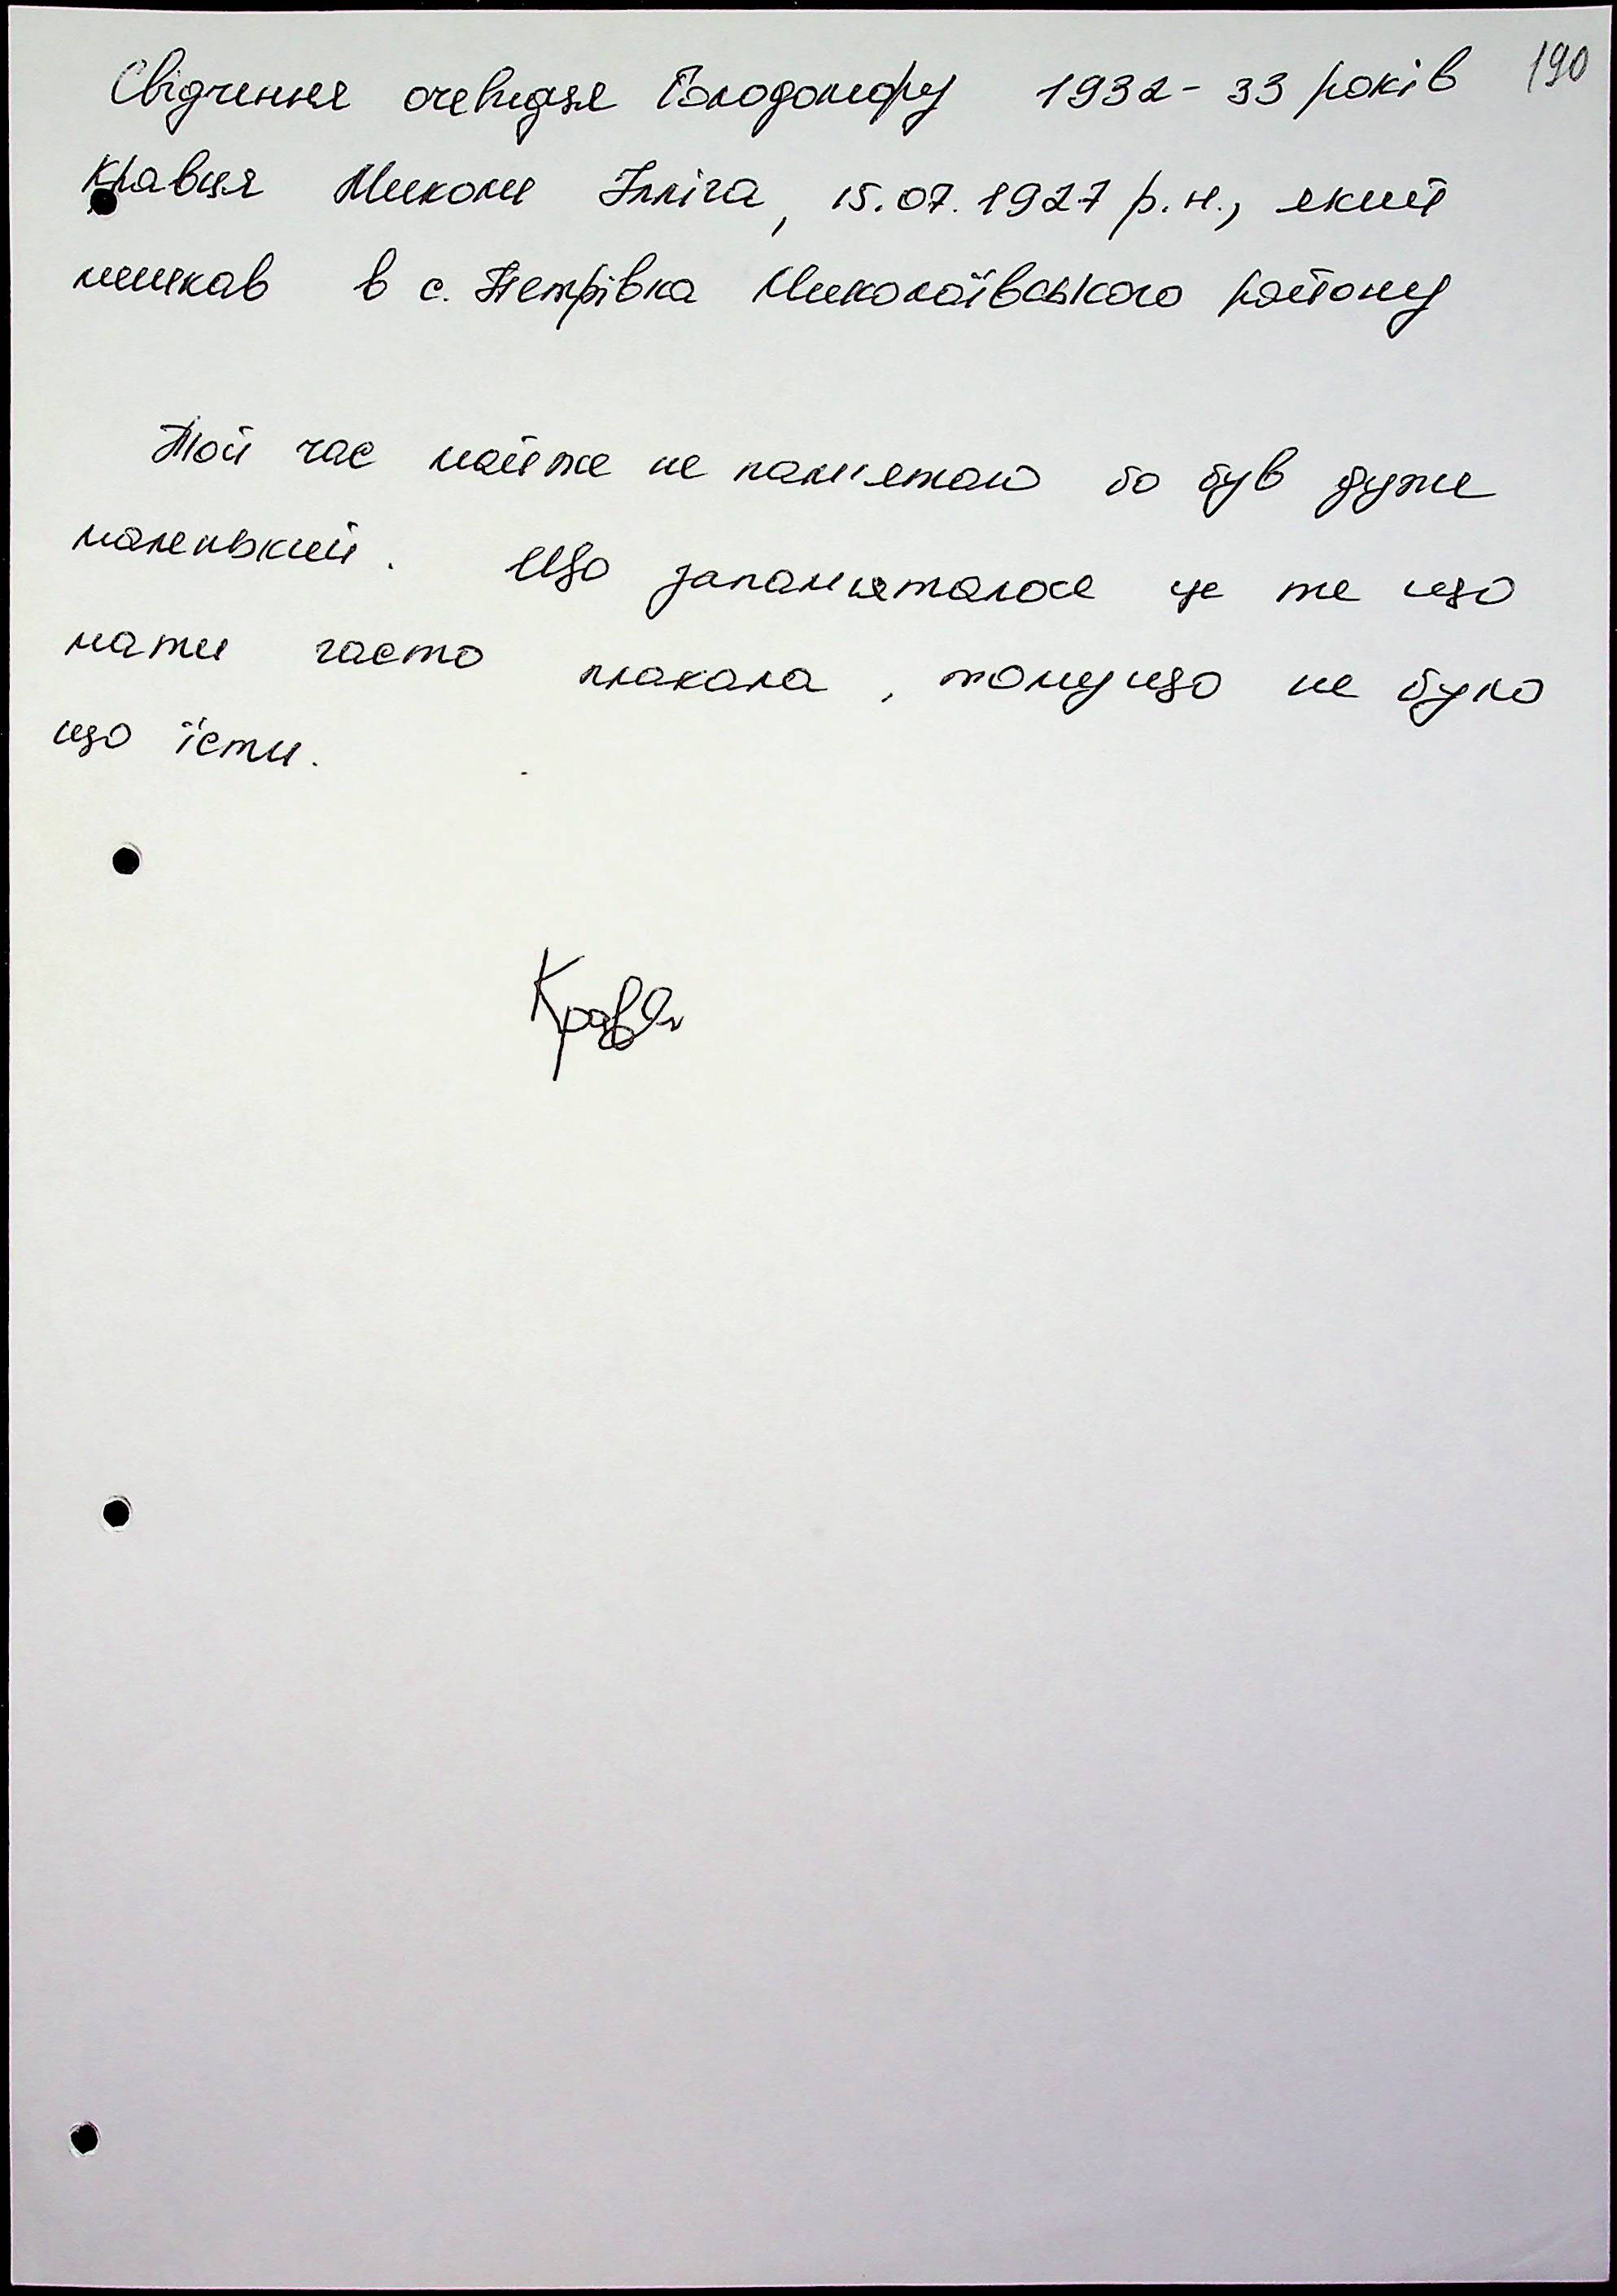 190
Свідчення очевидця Голодомору 1932-33 років
Кравця Миколи Ілліча, 15.07.1927 р.н., який
мешкав в с. Петрівка Миколаївського району
Той час майже не пам'ятаю бо був дуже
маленький. Що запам'яталося це те що
мати часто плакала, тому що не було
що їсти.